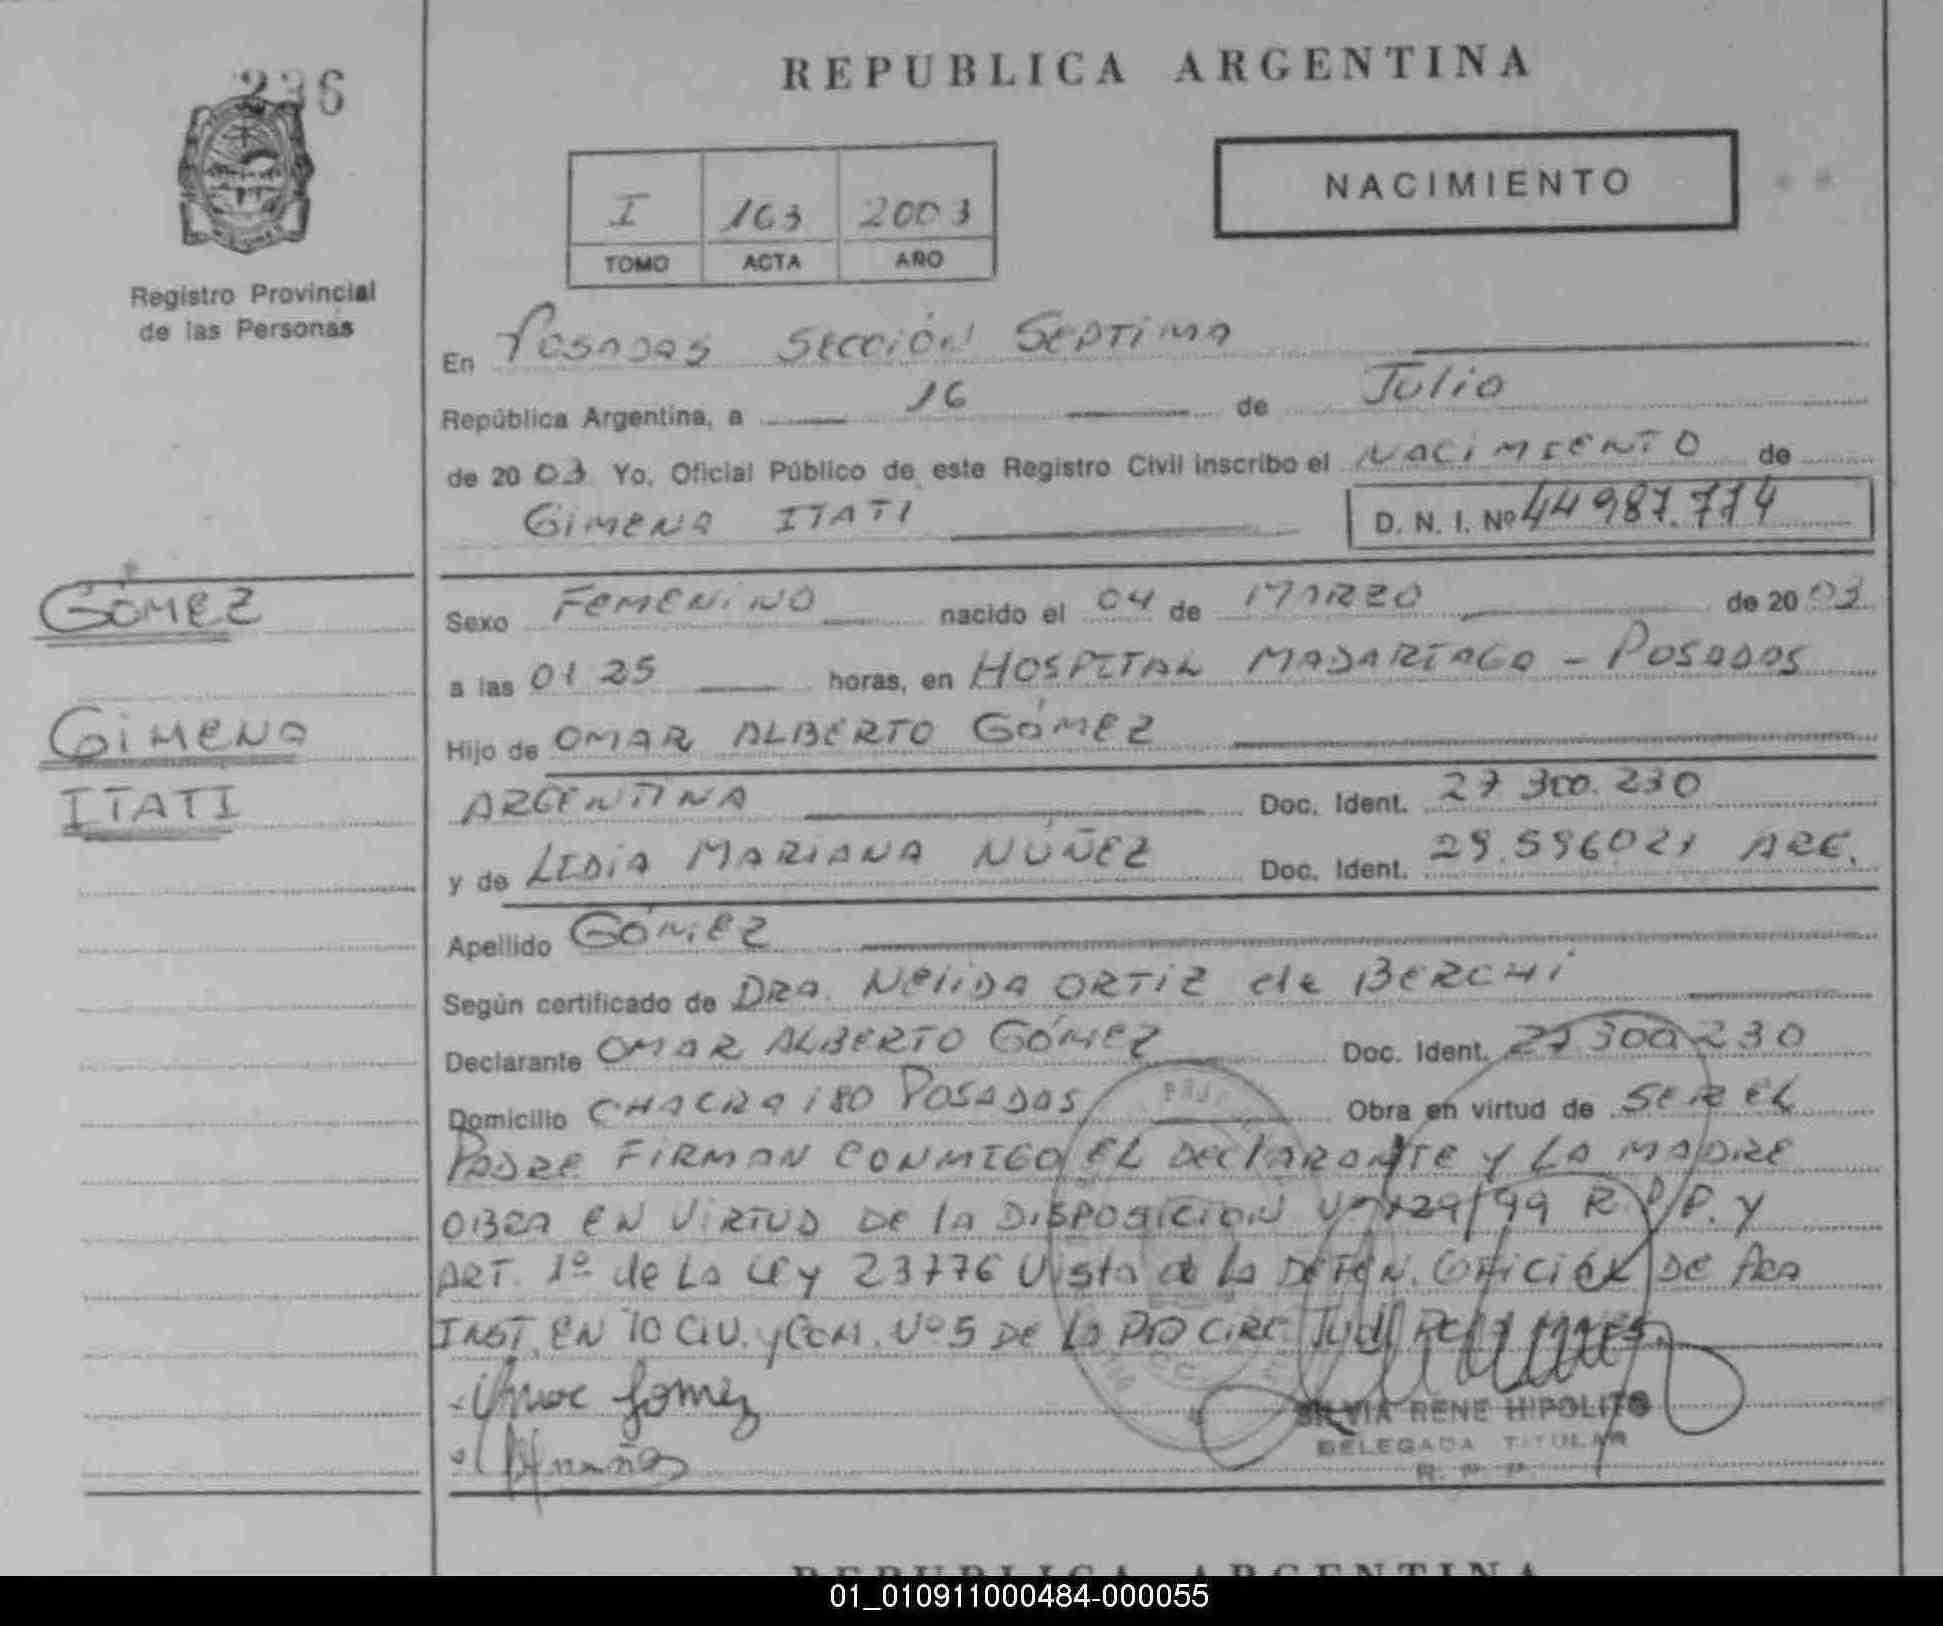 REPUBLICA ARGENTINA
236
NACIMIENTO
I 163 2003
TOMO ACTA AÑO
Registro Provincial
de las Personas
En POSADAS SECCIÓN SEPTIMA
República Argentina, a 16 de Julio
de 2003 Yo, Oficial Público de este Registro Civil inscribo el NACIMIENTO de
GIMENA ITATI D. N. I. Nº 44 987.774
GÓMEZ
Sexo FEMENINO nacido el 04 de MARZO de 2003
a las 01 25 horas, en HOSPITAL MADARIAGA - POSADAS
GIMENA
Hijo de OMAR ALBERTO GÓMEZ
ITATI
ARGENTINA Doc. Ident. 27 300.230
y de LIDIA MARIANA NÚÑEZ Doc. Ident. 29.596021 ARG.
Apellido GÓMEZ
Según certificado de DRA. NELIDA ORTIZ de BERCHI
Declarante OMAR ALBERTO GÓMEZ Doc. Ident. 27 300 230
Domicilio CHACRA 180 POSADAS Obra en virtud de SER EL
PADRE FIRMAN CONMIGO EL DECLARANTE Y LA MADRE
OBRA EN VIRTUD DE la DISPOSICION Nº 129/99 R.P.P. Y
ART. 1º de La LEY 23776 Vista a la DEFEN. OFICIAL DE
INST. EN lo CIV. y COM. Nº 5 DE LA CIRC. JUD.
Omar Gomez
SILVIA RENE HIPOLITO
DELEGADA TITULAR
R. P. P.
REPUBLICA ARGENTINA
01_010911000484-000055